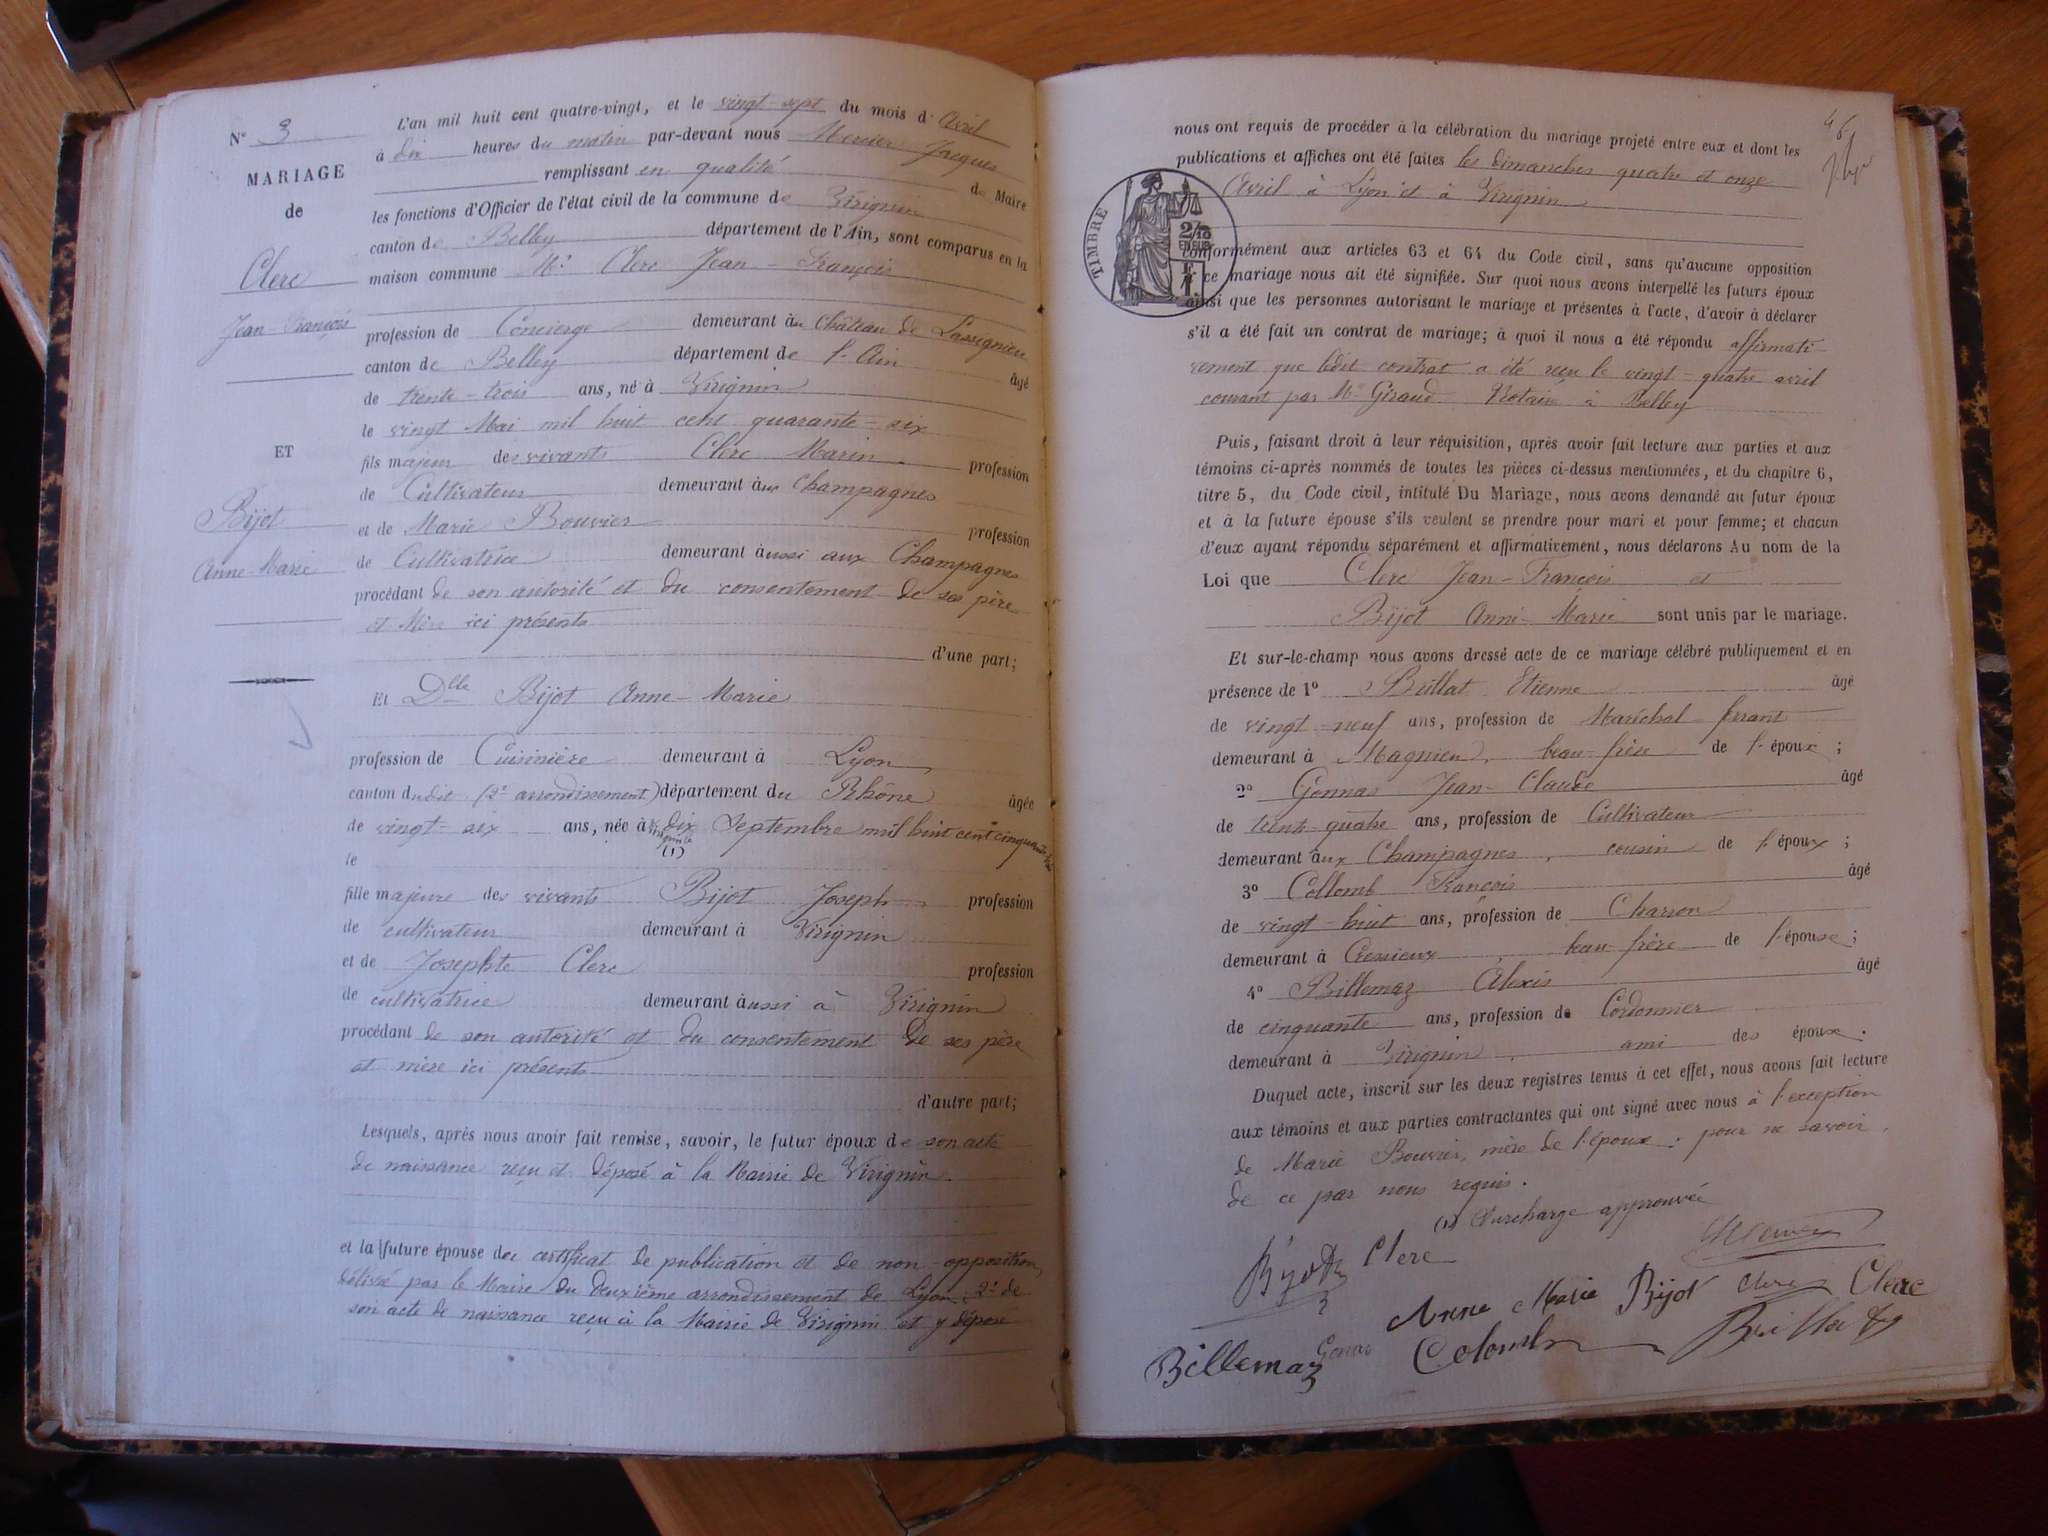 N° 3
MARIAGE
de
Clerc
Jean François
ET
Bijot
Anne-Marie
L'an mil huit cent quatre-vingt, et le vingt-sept du mois d' Avril
à dix heures du matin par-devant nous Mercier Jacques
remplissant en qualité de Maire
les fonctions d'Officier de l'état civil de la commune de Virignin
canton de Belley département de l'Ain, sont comparus en la
maison commune Mr Clerc Jean-François
profession de Concierge demeurant au Château de Lassignieu
canton de Belley département de l'Ain âgé
de trente-trois ans, né à Virignin
le vingt Mai mil huit cent quarante-six
fils majeur des vivants Clerc Marin profession
de Cultivateur demeurant aux Champagnes
et de Marie Bouvier profession
de Cultivatrice demeurant aussi aux Champagnes
procédant de son autorité et du consentement de ses père
et Mère ici présents
d'une part;
Et Dlle Bijot Anne-Marie
profession de Cuisinière demeurant à Lyon
canton dudit (2e arrondissement) département du Rhône âgée
de vingt-six ans, née à dix Septembre mil huit cent cinquante
(1)
le
fille majeure des vivants Bijot Joseph profession
de cultivateur demeurant à Virignin
et de Josephte Clerc profession
de cultivatrice demeurant aussi à Virignin
procédant de son autorité et du consentement de ses père
et mère ici présents
d'autre part;
Lesquels, après nous avoir fait remise, savoir, le futur époux de son acte
de naissance reçu et déposé à la Mairie de Virignin.
et la future épouse de certificat de publication et de non-opposition,
délivré par le Maire du deuxième arrondissement de Lyon; 2° de
son acte de naissance reçu à la Mairie de Virignin et y déposé
46
nous ont requis de procéder à la célébration du mariage projeté entre eux et dont les
publications et affiches ont été faites les dimanches quatre et onze
Avril à Lyon et à Virignin
TIMBRE
2/10
EN SUS
1 F.
conformément aux articles 63 et 64 du Code civil, sans qu'aucune opposition
à ce mariage nous ait été signifiée. Sur quoi nous avons interpellé les futurs époux
ainsi que les personnes autorisant le mariage et présentes à l'acte, d'avoir à déclarer
s'il a été fait un contrat de mariage; à quoi il nous a été répondu affirmati-
vement que ledit contrat a été reçu le vingt-quatre avril
courant par Me Giraud Notaire à Belley
Puis, faisant droit à leur réquisition, après avoir fait lecture aux parties et aux
témoins ci-après nommés de toutes les pièces ci-dessus mentionnées, et du chapitre 6,
titre 5, du Code civil, intitulé Du Mariage, nous avons demandé au futur époux
et à la future épouse s'ils veulent se prendre pour mari et pour femme; et chacun
d'eux ayant répondu séparément et affirmativement, nous déclarons Au nom de la
Loi que Clerc Jean-François et
Bijot Anne-Marie sont unis par le mariage.
Et sur-le-champ nous avons dressé acte de ce mariage célébré publiquement et en
présence de 1° Brillat Etienne âgé
de vingt-neuf ans, profession de Maréchal ferrant
demeurant à Magnieu, beau-frère de l'époux;
2° Gonnas Jean-Claude âgé
de trente-quatre ans, profession de Cultivateur
demeurant aux Champagnes, cousin de l'époux;
3° Collomb François âgé
de vingt-huit ans, profession de Charron
demeurant à Cressieux, beau-frère de l'épouse;
4° Billemaz Alexis âgé
de cinquante ans, profession de Cordonnier
demeurant à Virignin, ami des époux.
Duquel acte, inscrit sur les deux registres tenus à cet effet, nous avons fait lecture
aux témoins et aux parties contractantes qui ont signé avec nous à l'exception
de Marie Bouvier, mère de l'époux; pour ne savoir,
de ce par nous requis.
(1) Surcharge approuvée
Bijot Clerc
Anne Marie Bijot Clerc Clerc
Billemaz Gonas Colomb Brillat